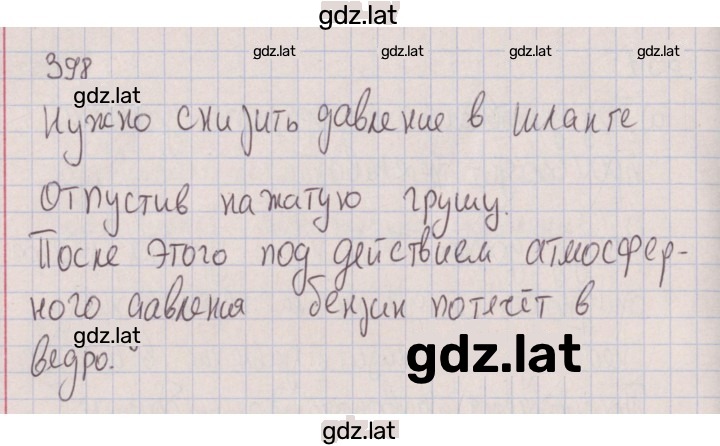 gdz.lat
gdz.lat gdz.lat gdz.lat gdz.lat
398
gdz.lat
Нужно снизить давление в шланге
Отпустив нажатую грушу.
После этого под действием атмосфер-
ного давления бензин потечёт в
gdz.lat
ведро.
gdz.lat
gdz.lat